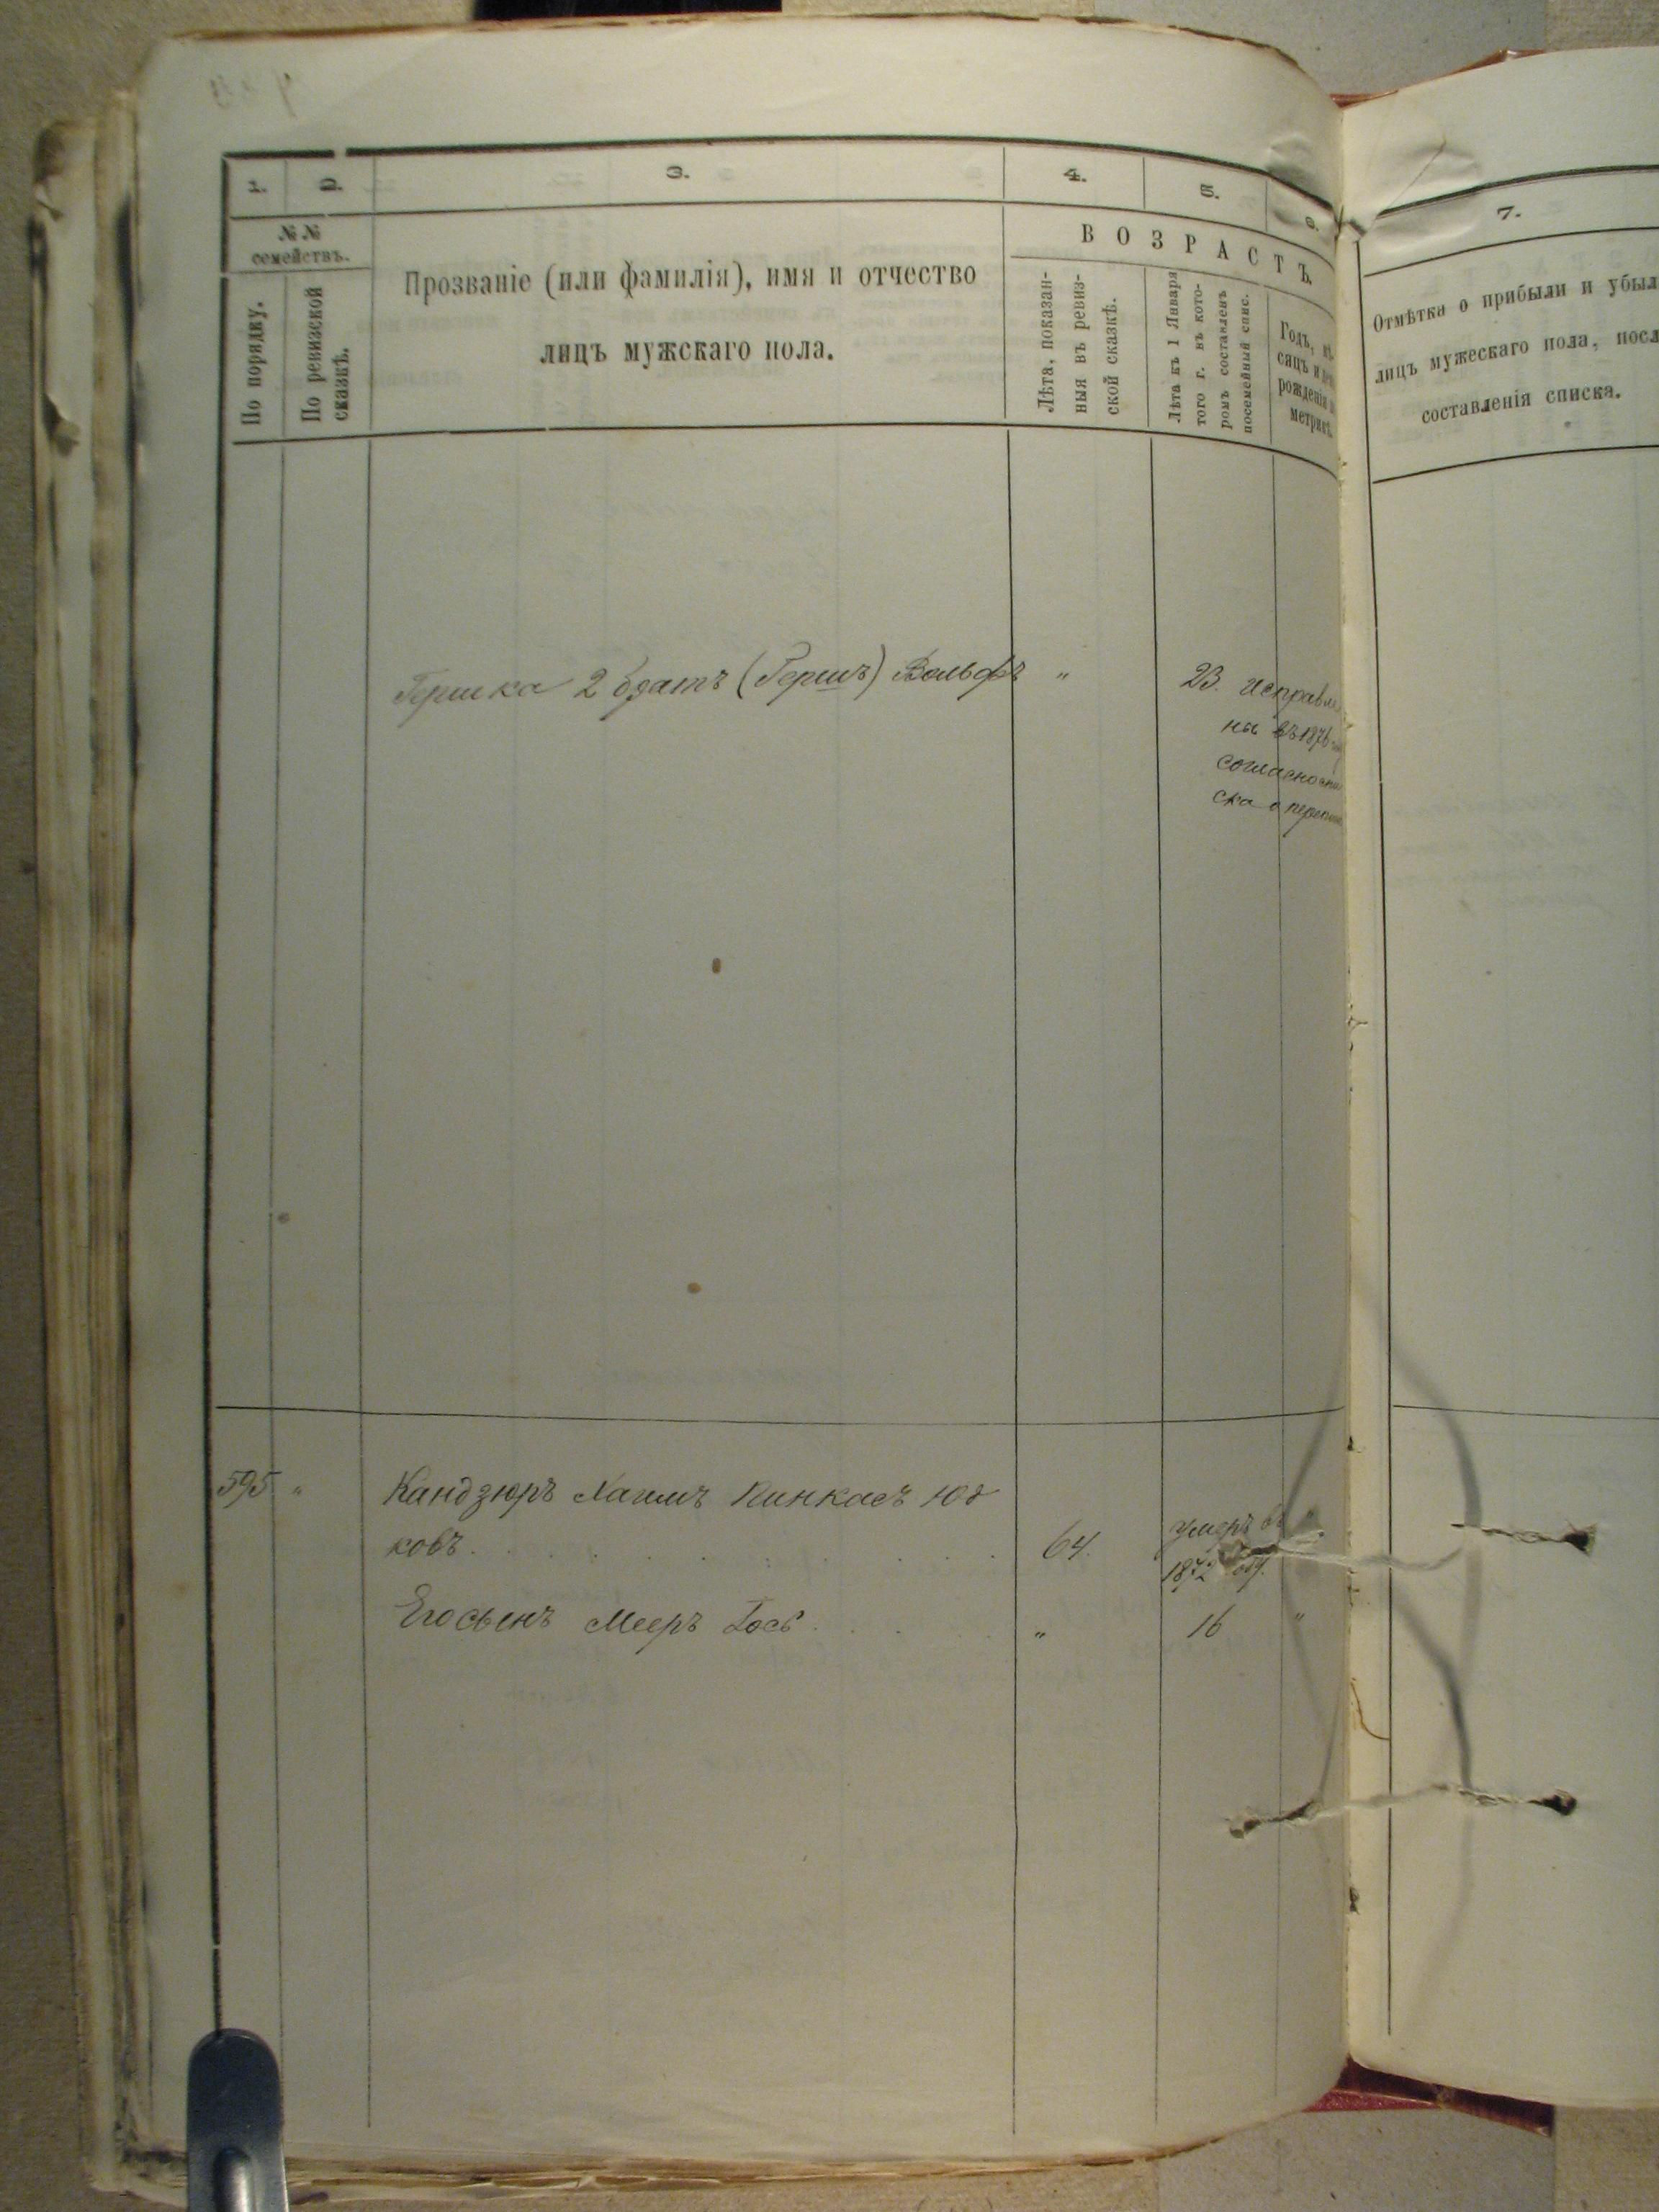 1. 2. 3. 4. 5. 6. 7.
№ №
семействъ.
По порядку.
По ревизской
сказкѣ.
Прозваніе (или фамилія), имя и отчество
лицъ мужскаго пола.
ВОЗРАСТЪ.
Лѣта, показан-
ныя въ ревиз-
ской сказкѣ.
Лѣта къ 1 Января
того г. въ кото-
ромъ составленъ
посемейный спис.
Годъ, мѣ-
сяцъ и
рожденія
метрик.
Отмѣтка о прибыли и убыл
лицъ мужескаго пола, посл
составленія списка.
Гершка 2 братъ (Гершъ) Вольфъ " 23. исправле
ны въ 1876
согласно
ска о
595 " Кандзюръ Хаимъ Пинкасъ Юд
ковъ. 64. умеръ въ "
1872 году.
Его сынъ Мееръ Іось " 16 "